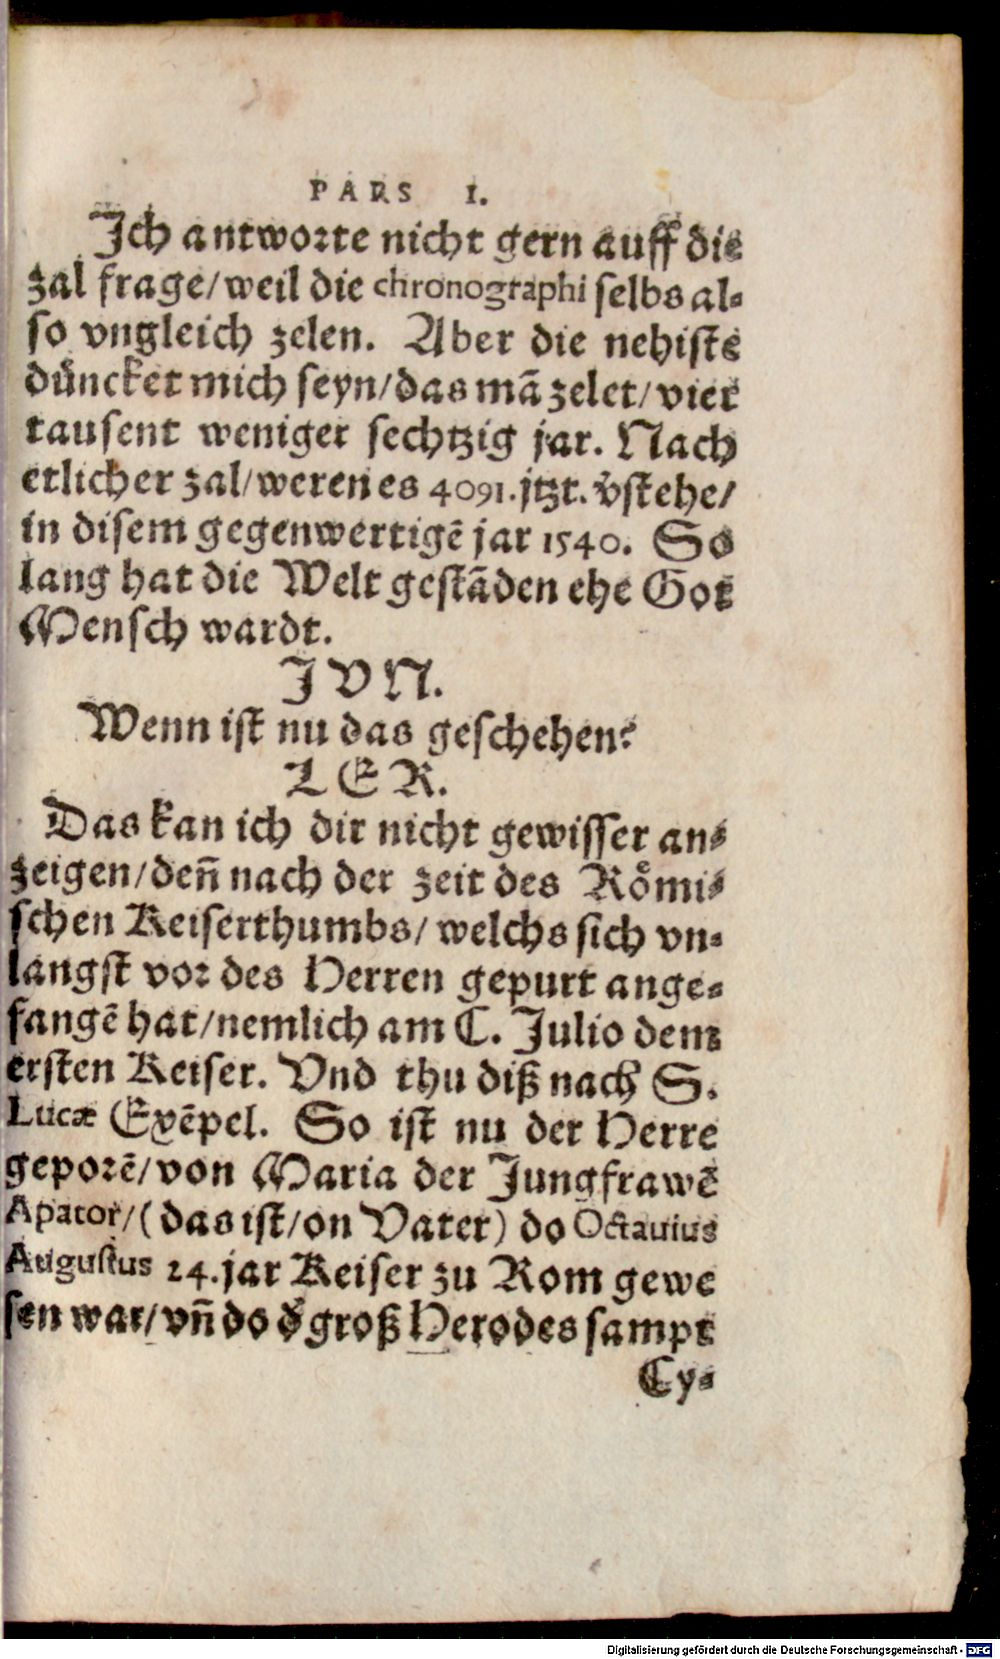 PARS I.
Ich antworte nicht gern auff die
zal frage/weil die chronographi selbs al-
so vngleich zelen. Aber die nehiste
düncket mich seyn/das mã zelet/vier
tausent weniger sechtzig jar. Nach
etlicher zal/weren es 4091. jtzt. v̾stehe/
in disem gegenwertigẽ jar 1540. So
lang hat die Welt gestãden ehe Got
Mensch wardt.
JVN.
Wenn ist nu das geschehen?
LER.
Das kan ich dir nicht gewisser an-
zeigen/deñ nach der zeit des Römi-
schen Keiserthumbs/ welchs sich vn-
langst vor des Herren gepurt ange-
fangẽ hat/nemlich am C. Julio dem
ersten Keiser. Vnd thu diß nach S.
Lucæ Exẽpel. So ist nu der Herre
geporẽ/von Maria der Jungfrawẽ
Apator/(das ist/on Vater) do Octauius
Augustus 24. jar Keiser zu Rom gewe
sen war/vñ do d̾ groß Herodes sampt
Cy-
Digitalisierung gefördert durch die Deutsche Forschungsgemeinschaft - DFG